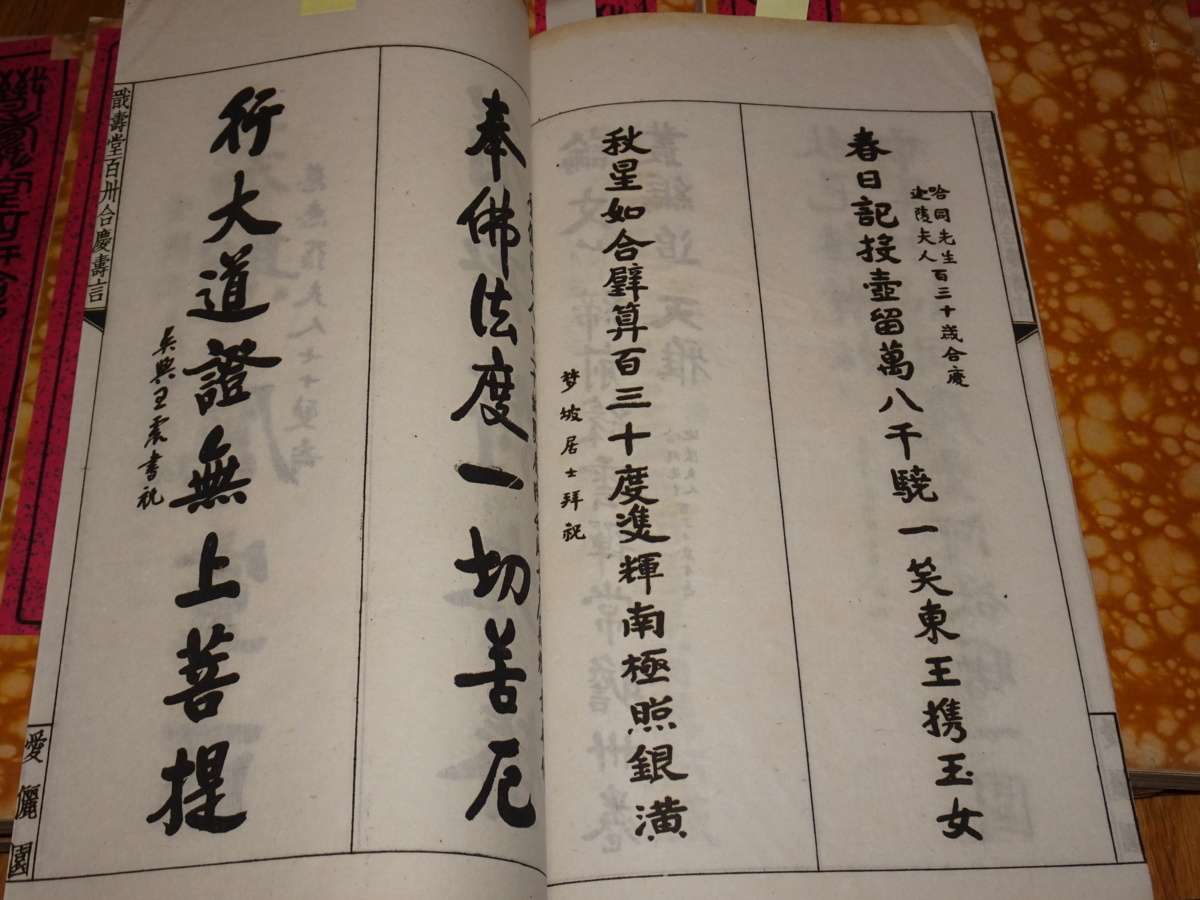 哈同先生百三十歲合慶
迦陵夫人
春日記投壺留萬八千驍一笑東王携玉女
秋星如合璧算百三十度雙輝南極照銀潢
梦坡居士拜祝
奉佛法度一切苦厄
行大道證無上菩提
吳興王震書祝
戩壽堂百卅合慶壽言
愛儷園